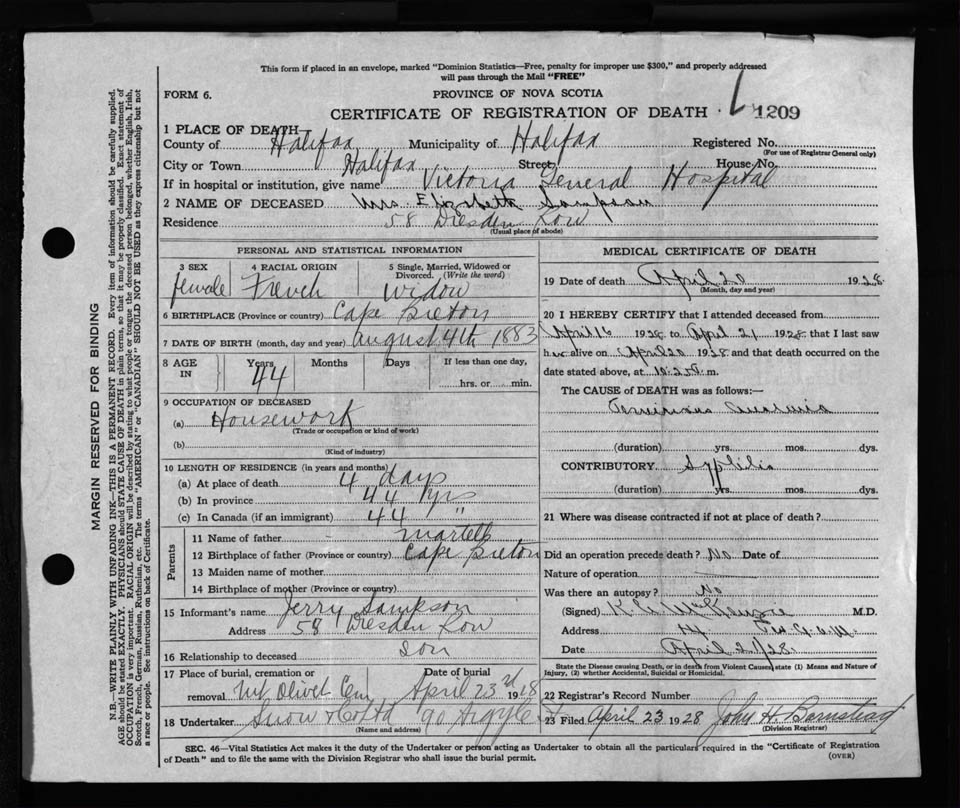 This form if placed in an envelope, marked "Dominion Statistics—Free, penalty for improper use $300," and properly addressed
will pass through the Mail "FREE"
FORM 6.
PROVINCE OF NOVA SCOTIA
CERTIFICATE OF REGISTRATION OF DEATH
1209
1 PLACE OF DEATH—
County of Halifax Municipality of Halifax Registered No.
(For use of Registrar General only)
City or Town Halifax Street House No.
If in hospital or institution, give name Victoria General Hospital
2 NAME OF DECEASED Mrs Elizabeth Sampson
Residence 58 Dresden Row
(Usual place of abode)
MARGIN RESERVED FOR BINDING
N.B.—WRITE PLAINLY WITH UNFADING INK—THIS IS A PERMANENT RECORD. Every item of information should be carefully supplied.
AGE should be stated EXACTLY. PHYSICIANS should STATE CAUSE OF DEATH in plain terms, so that it may be properly classified. Exact statement of
OCCUPATION is very important. RACIAL ORIGIN will be described by stating to what people or tongue the deceased person belonged, whether English, Irish,
Scotch, French, German, Russian, Ruthenian, etc. The terms "AMERICAN" or "CANADIAN" SHOULD NOT BE USED as they express citizenship but not
a race or people. See instructions on back of Certificate.
PERSONAL AND STATISTICAL INFORMATION
3 SEX
female
4 RACIAL ORIGIN
French
5 Single, Married, Widowed or
Divorced. (Write the word)
widow
6 BIRTHPLACE (Province or country) Cape Breton
7 DATE OF BIRTH (month, day and year) august 4th 1883
8 AGE
IN
Years
44
Months
Days
If less than one day,
hrs. or min.
9 OCCUPATION OF DECEASED
(a) Housework
(Trade or occupation or kind of work)
(b)
(Kind of industry)
10 LENGTH OF RESIDENCE (in years and months)
(a) At place of death 4 days
(b) In province 44 yrs
(c) In Canada (if an immigrant) 44 "
Parents
11 Name of father martell
12 Birthplace of father (Province or country) Cape Breton
13 Maiden name of mother
14 Birthplace of mother (Province or country)
15 Informant's name Jerry Sampson
Address 58 Dresden Row
16 Relationship to deceased son
17 Place of burial, cremation or
removal Mt Olivet Cem
Date of burial
April 23rd 1928
18 Undertaker Snow & Co Ltd 90 Argyle St
(Name and address)
MEDICAL CERTIFICATE OF DEATH
19 Date of death April 20 1928
(Month, day and year)
20 I HEREBY CERTIFY that I attended deceased from
April 16 1928 to April 21 1928 that I last saw
her alive on April 20 1928 and that death occurred on
date stated above, at m.
The CAUSE OF DEATH was as follows:—
Pernicious Anaemia
(duration) yrs. mos. dys.
CONTRIBUTORY Syphilis
(duration) yrs. mos. dys.
21 Where was disease contracted if not at place of death?
Did an operation precede death? No Date of
Nature of operation
Was there an autopsy? No
(Signed) McKenzie M.D.
Address
Date April 21/28
State the Disease causing Death, or in death from Violent Causes, state (1) Means and Nature of
Injury, (2) whether Accidental, Suicidal or Homicidal.
22 Registrar's Record Number
23 Filed April 23 1928 John H Barnstead
(Division Registrar)
SEC. 46—Vital Statistics Act makes it the duty of the Undertaker or person acting as Undertaker to obtain all the particulars required in the "Certificate of Registration
of Death" and to file the same with the Division Registrar who shall issue the burial permit.
(OVER)